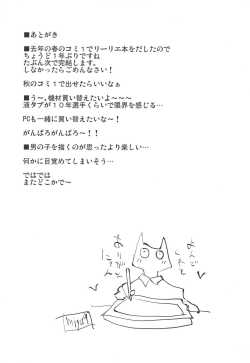 ■あとがき
■去年の春のコミ1でリーリエ本をだしたので
ちょうど1年ぶりですね
たぶん次で完結します。
しなかったらごめんなさい！
秋のコミ1で出せたらいいなぁ
■う〜、機材買い替えたいよ〜〜〜
液タブが10年選手くらいで限界を感じる…
PCも一緒に買い替えたいな〜！
がんばろがんばろ〜！！
■男の子を描くのが思ったより楽しい…
何かに目覚めてしまいそう…
ではでは
またどこかで〜